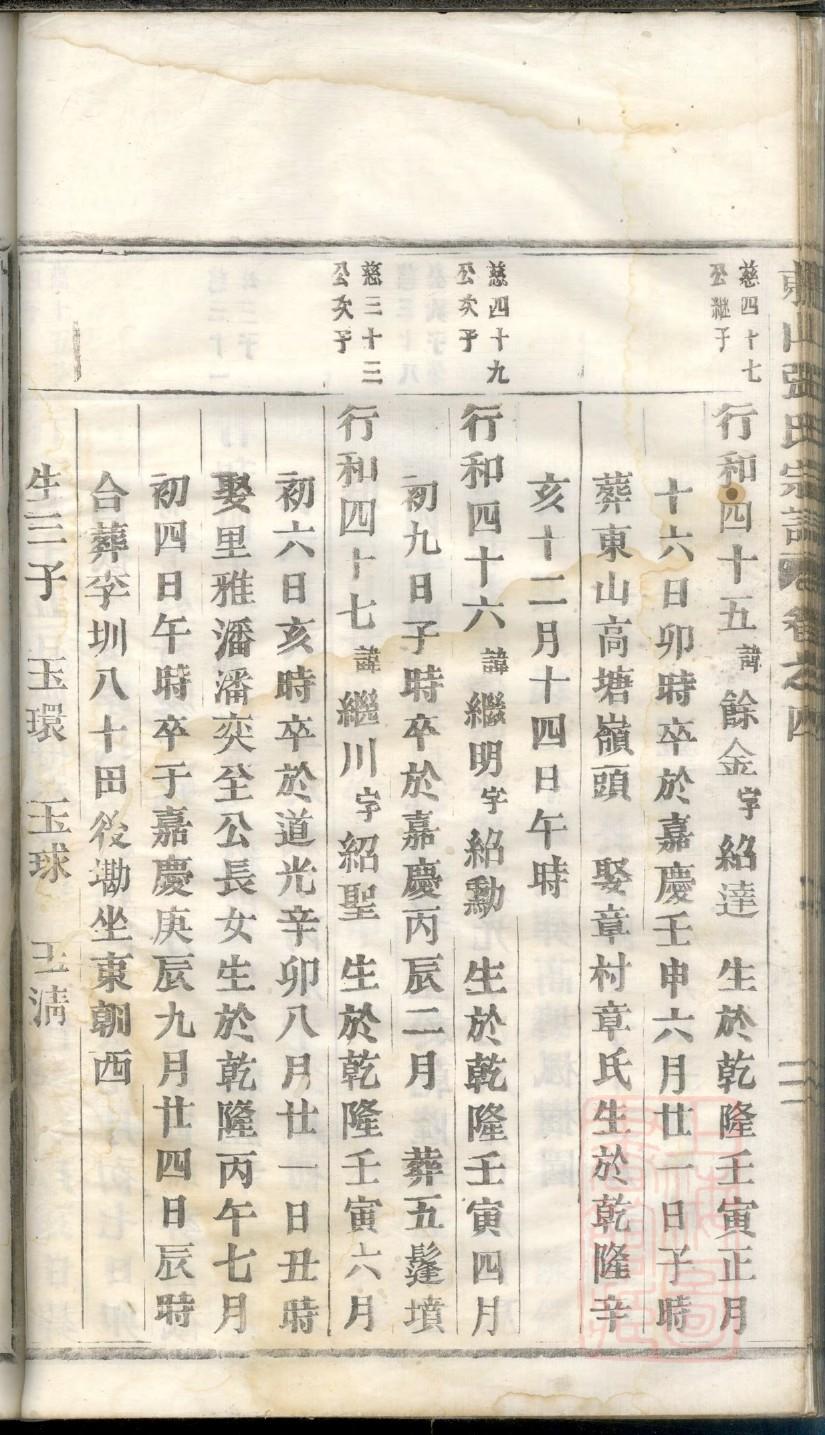 東山張氏宗譜 卷之四
慈四十七
公繼子
行和四十五 諱餘金 字紹達 生於乾隆壬寅正月
十六日卯時卒於嘉慶壬申六月廿一日子時
葬東山高塘嶺頭 娶章村章氏生於乾隆辛
亥十二月十四日午時
慈四十九
公次子
行和四十六 諱繼明 字紹勳 生於乾隆壬寅四月
初九日子時卒於嘉慶丙辰二月 葬五鬔墳
慈三十三
公次子
行和四十七 諱繼川 字紹聖 生於乾隆壬寅六月
初六日亥時卒於道光辛卯八月廿一日丑時
娶里雅潘潘奕𦤶公長女生於乾隆丙午七月
初四日午時卒于嘉慶庚辰九月廿四日辰時
合葬李圳八十田後墈坐東朝西
生三子 玉環 玉球 玉清